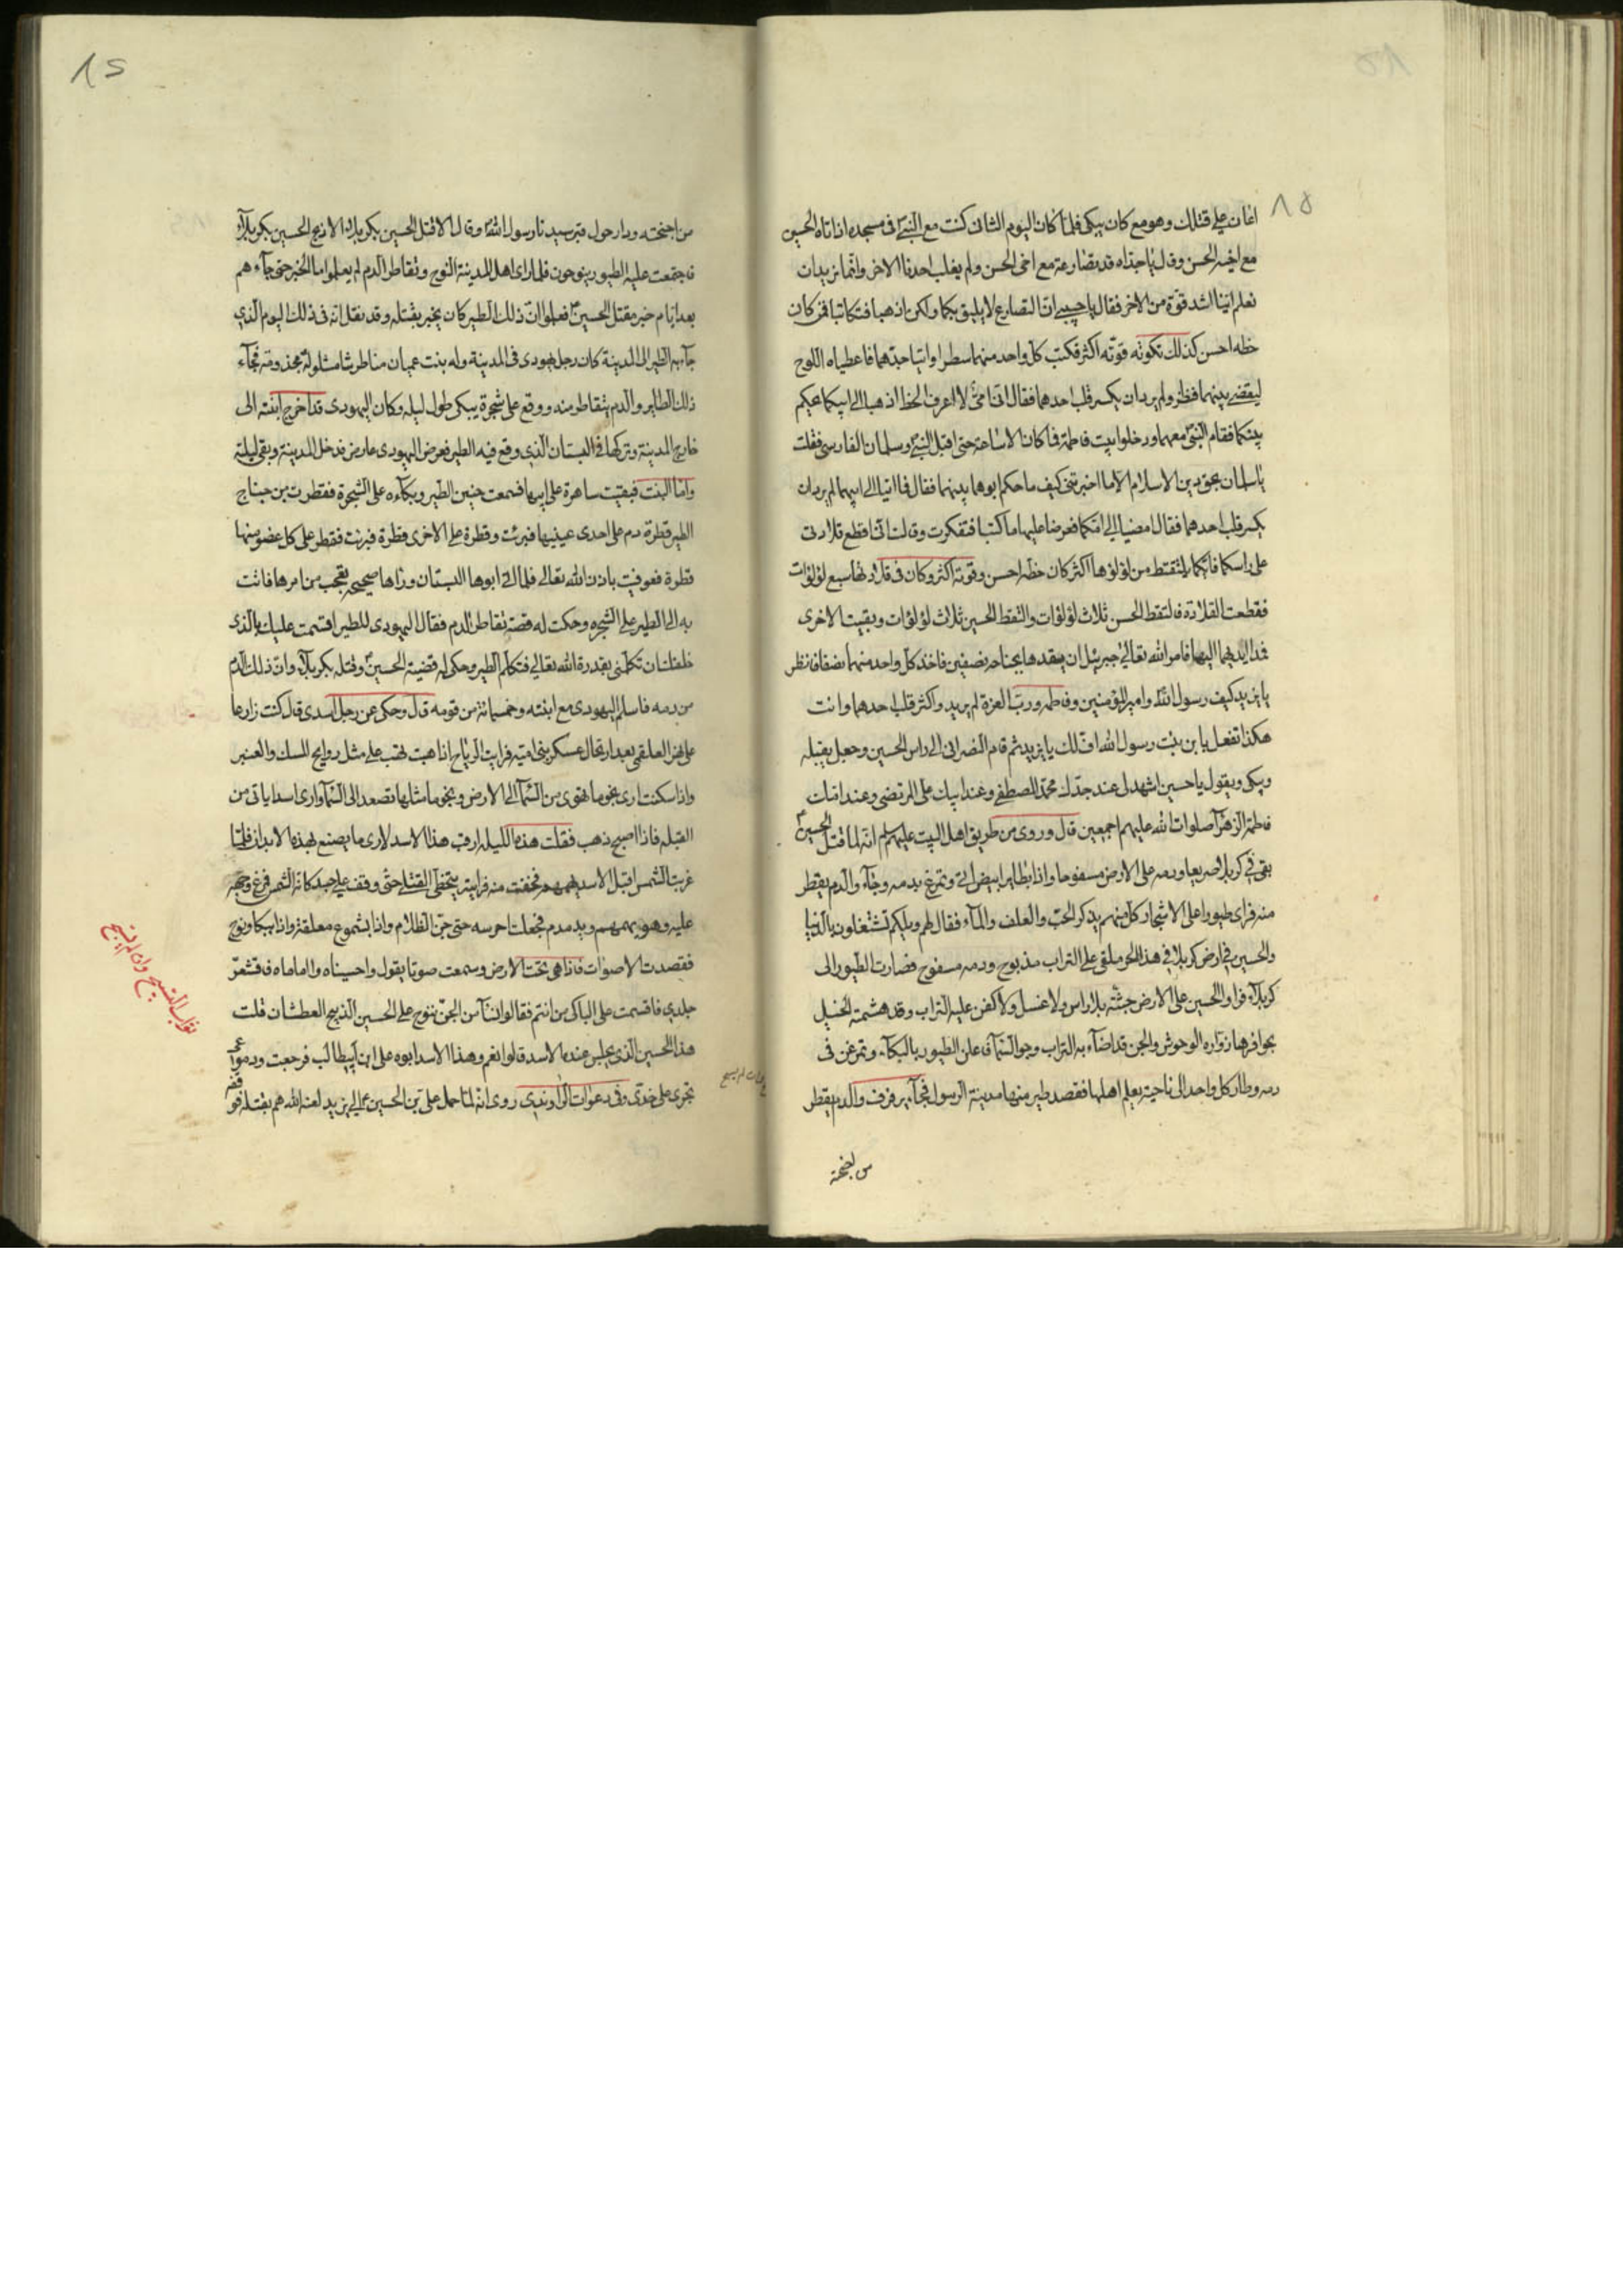 ١٥
اعان على قتلك وهو مع كان يبكى فلما كان اليوم الثانى كنت مع النبى فى مسجده اذ اتاه الحسين
مع اخيه الحسن وقال يا جداه قد تصارعت مع اخى الحسن ولم يغلب احدنا الاخر وانما نريد ان
نعلم اينا اشد قوة من الاخر فقال يا حبيبى ان التصارع لا يليق بكما ولكن اذهبا فتكاتبا فمن كان
خطه احسن كذلك تكون قوته اكثر فكتب كل واحد منهما سطرا واتيا جدهما فاعطياه اللوح
ليقضى بينهما فنظر ولم يرد ان يكسر قلب احدهما فقال انى امى لا اعرف الخط اذهبا الى ابيكما يحكم
بينكما فقام النبى معهما ودخلوا بيت فاطمة فما كان الا ساعة حتى اقبل النبى وسلمان الفارسى فقلت
يا سلمان بحق دين الاسلام الا ما اخبرتنى كيف ما حكم ابوهما بينهما فقال فما اتيا الى ابيهما لم يرد ان
يكسر قلب احدهما فقال امضيا الى امكما فعرضا عليها ما كتبا فتفكرت وقالت انا اقطع قلادتى
على راسكما فايكما يلتقط من لؤلؤها اكثر كان خطه احسن وقوته اكثر وكان فى قلادتها سبع لؤلؤات
فقطعت القلادة فالتقط الحسن ثلاث لؤلؤات والتقط الحسين ثلاث لؤلؤات وبقيت الاخرى
فمدا ايديهما اليها فامر الله تعالى جبرئيل ان يقدها بجناحه نصفين فاخذ كل واحد منهما نصفا فانظر
يا يزيد كيف رسول الله وامير المؤمنين وفاطمه ورب العزة لم يريدوا كسر قلب احدهما وانت
هكذا تفعل بابن بنت رسول الله اف لك يا يزيد ثم قام النصرانى الى راس الحسين وجعل يقبله
ويبكى ويقول يا حسين اشهد لى عند جدك محمد المصطفى وعند ابيك على المرتضى وعند امك
فاطمة الزهرآ صلوات الله عليهم اجمعين قال وروى من طريق اهل البيت عليهم السلم انه لما قتل الحسين
بقى فى كربلا صريعا ودمه على الارض مسفوحا واذا بطاير ابيض اتى وتمرغ بدمه وجآء والدم يقطر
منه فراى طيورا على الاشجار كل منهم يذكر الحب والعلف والمآء فقال لهم ويلكم تشتغلون بالدنيا
والحسين فى ارض كربلا فى هذا الحر ملقى على التراب مذبوح ودمه مسفوح فصارت الطيور الى
كربلآء فراوا الحسين على الارض جثة بلا راس ولا غسل ولا كفن عليه التراب وقد هشمته الخيل
بحوافرها زواره الوحوش والجن قد اضآء به التراب وجو السمآ فاعلن الطيور بالبكآء وتمرغن فى
دمه وطار كل واحد الى ناحية يعلم اهلها فقصد طير منها مدينة الرسول فجآء يرفرف والدم يقطر
من اجنحته
١٥
من اجنحته ودار حول قبر سيدنا رسول الله وقال الا قتل الحسين بكربلاء الا ذبح الحسين بكربلآء
فاجتمعت عليه الطيور ينوحون فلما راى اهل المدينة النوح وتقاطر الدم لم يعلموا ما الخبر حتى جآءهم
بعد ايام خبر مقتل الحسين فعلموا ان ذلك الطير كان يخبر بقتله وقد نقل انه فى ذلك اليوم الذى
جآء به الطير الى المدينة كان رجل يهودى فى المدينة وله بنت عميا طرشا مشلولة مجذومة فجآء
ذلك الطاير والدم يتقاطر منه ووقع على شجرة يبكى طول ليله وكان اليهودى قد اخرج ابنته الى
خارج المدينة وتركها فى البستان الذى وقع فيه الطير فعرض لليهودى عارض فدخل المدينة وبقى ليلة
واما البنت فبقيت ساهرة على ابيها فسمعت حنين الطير وبكآءه على الشجرة فقطرت من جناح
الطير قطرة دم على احدى عينيها فبرئت وقطرة على الاخرى فبرئت فقطر على كل عضو منها
قطرة فعوفيت باذن الله تعالى فلما اتى ابوها البستان وراها صحيحة تعجب من امرها فاتت
به الى الطير على الشجره وحكت له قصة تقاطر الدم فقال اليهودى للطير اقسمت عليك بالذى
خلقك ان تكلمنى بقدرة الله تعالى فتكلم الطير وحكى له قضية الحسين وقتله بكربلآء وان ذلك الدم
من دمه فاسلم اليهودى مع ابنته وخمسمائة من قومه قال وحكى عن رجل اسدى قال كنت زارعا
على نهر العلقمى بعد ارتحال عسكر بنى امية فرايت الرياح اذا هبت تهب على مثل روايح المسك والعنبر
واذا سكنت ارى نجوما تهوى من السمآ الى الارض ونجوما مثلها تصعد الى السمآ وارى اسدا ياتى من
القبلة فاذا اصبح ذهب فقلت هذه الليله ارقب هذا الاسد لارى ما يصنع بهذه الابدان فلما
غربت الشمس اقبل الاسد يهمهم فخفت منه فرايته يتخطى القتلى حتى وقف على جسد كانه الشمس فمرغ وجهه
عليه وهو يهمهم ويدمدم فجعلت احرسه حتى جن الظلام واذا بشموع معلقة واذا ببكا ونوح
فقصدت الاصوات فاذا هى تحت الارض وسمعت صوتا يقول واحسيناه وااماماه فاقشعر
جلدى فاقسمت على الباكى من انتم فقالوا انا نسآء من الجن ننوح على الحسين الذبيح العطشان قلت
هذا الحسين الذى يجلس عنده الاسد قالوا نعم وهذا الاسد ابوه على ابن ابيطالب فرجعت ودموعى
تجرى على خدى وفى دعوات الراوندى روى انه لما حمل على بن الحسين الى يزيد لعنه الله هم بقتله فوقفه